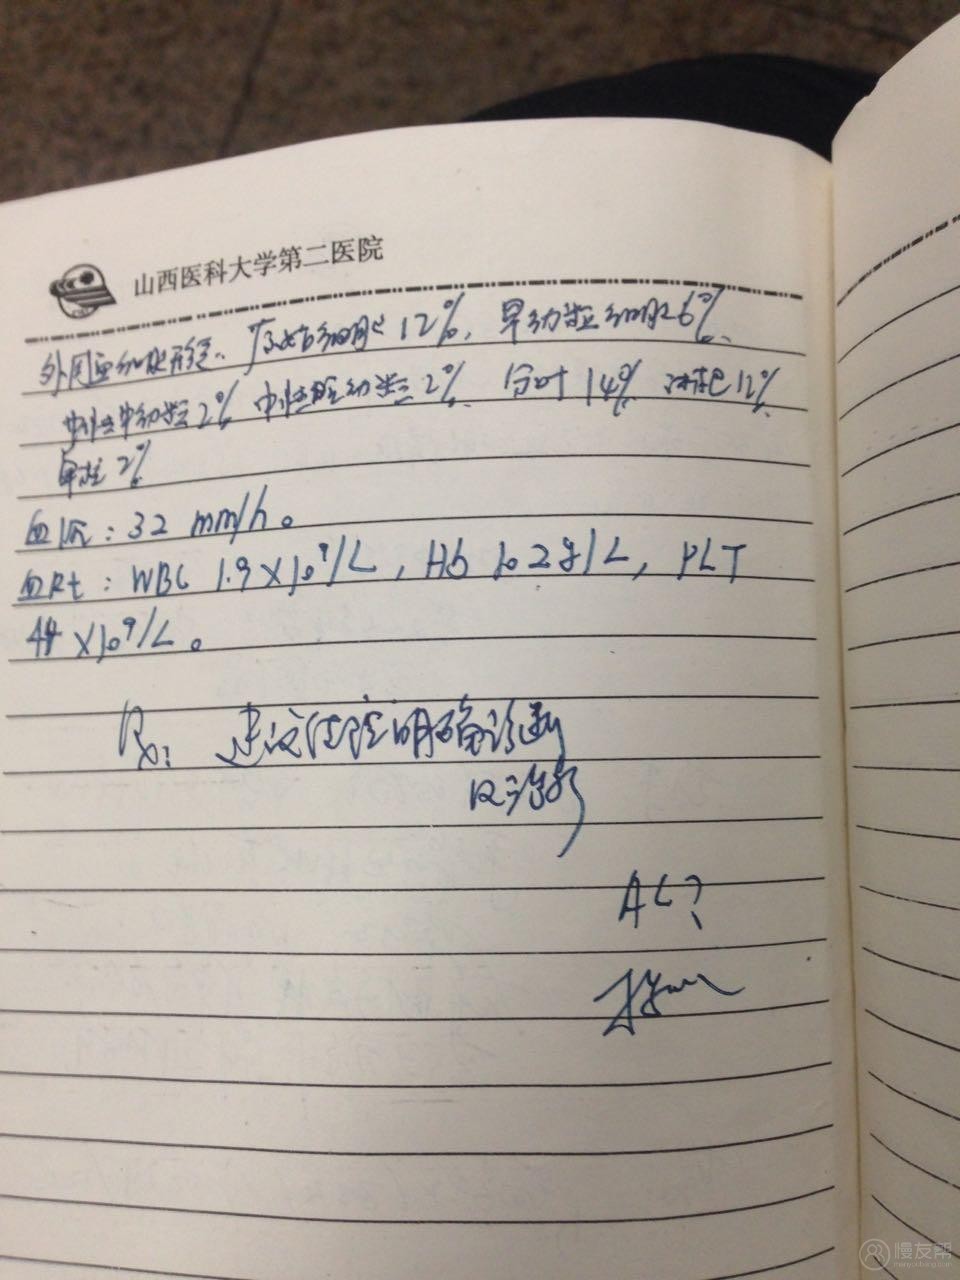 山西医科大学第二医院
外周血细胞形态: 原始细胞 12%, 早幼粒细胞 6%、
中性中幼粒 2% 中性晚幼粒 2%、分叶 14%、淋巴 12%、
单核 2%
血沉: 32 mm/h。
血Rt: WBC 1.9×10⁹/L, Hb 102g/L, PLT
44×10⁹/L。
Rx: 建议住院明确诊断
及治疗
AL?
慢友帮